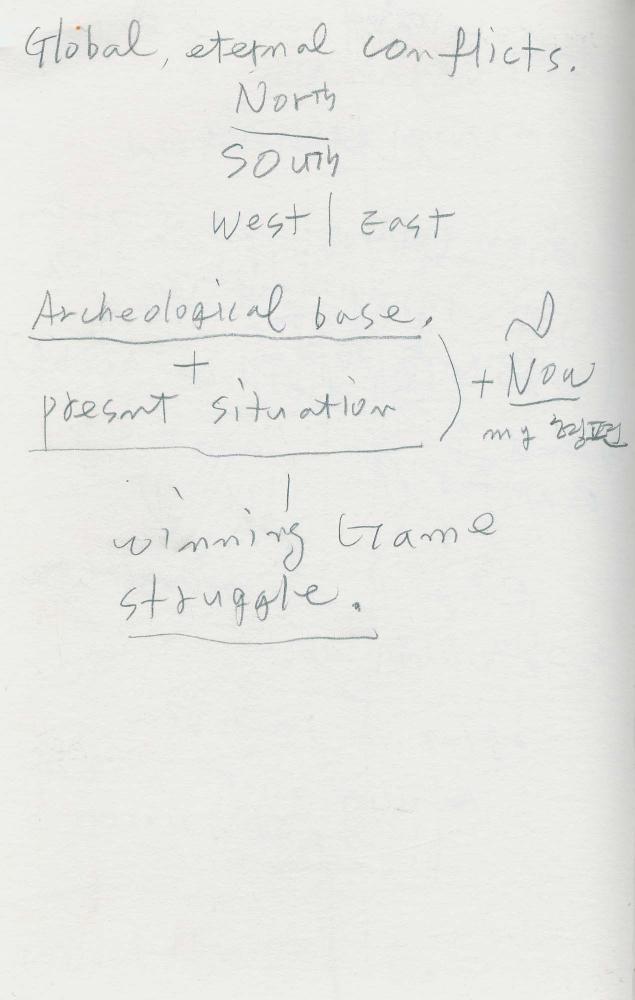 Global, eternal conflicts.
North
South
West | East
Archeological base,
+
present situation
+ Now
my 형편
winning Game
struggle.